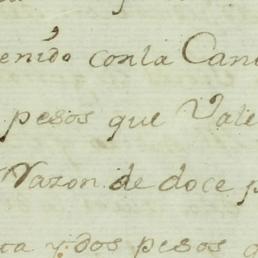 enido con la Can
pesos que Vale
Razon de doce p
ta y dos pesos